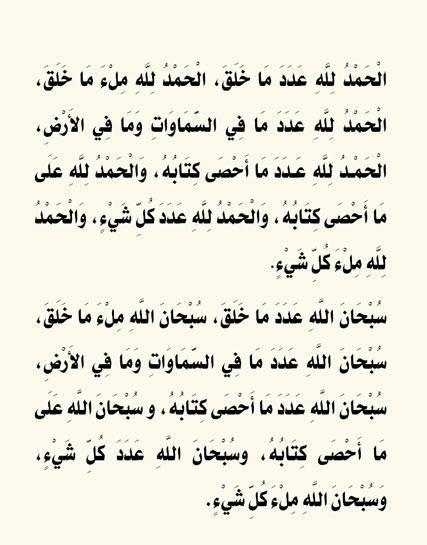 الْحَمْدُ لِلَّهِ عَدَدَ مَا خَلَقَ، الْحَمْدُ لِلَّهِ مِلْءَ مَا خَلَقَ،
الْحَمْدُ لِلَّهِ عَدَدَ مَا فِي السَّمَاوَاتِ وَمَا فِي الأَرْضِ،
الْحَمْدُ لِلَّهِ عَدَدَ مَا أَحْصَى كِتَابُهُ، وَالْحَمْدُ لِلَّهِ عَلَى
مَا أَحْصَى كِتَابُهُ، وَالْحَمْدُ لِلَّهِ عَدَدَ كُلِّ شَيْءٍ، وَالْحَمْدُ
لِلَّهِ مِلْءَ كُلِّ شَيْءٍ.
سُبْحَانَ اللَّهِ عَدَدَ مَا خَلَقَ، سُبْحَانَ اللَّهِ مِلْءَ مَا خَلَقَ،
سُبْحَانَ اللَّهِ عَدَدَ مَا فِي السَّمَاوَاتِ وَمَا فِي الأَرْضِ،
سُبْحَانَ اللَّهِ عَدَدَ مَا أَحْصَى كِتَابُهُ، و سُبْحَانَ اللَّهِ عَلَى
مَا أَحْصَى كِتَابُهُ، وسُبْحَانَ اللَّهِ عَدَدَ كُلِّ شَيْءٍ،
وَسُبْحَانَ اللَّهِ مِلْءَ كُلِّ شَيْءٍ.